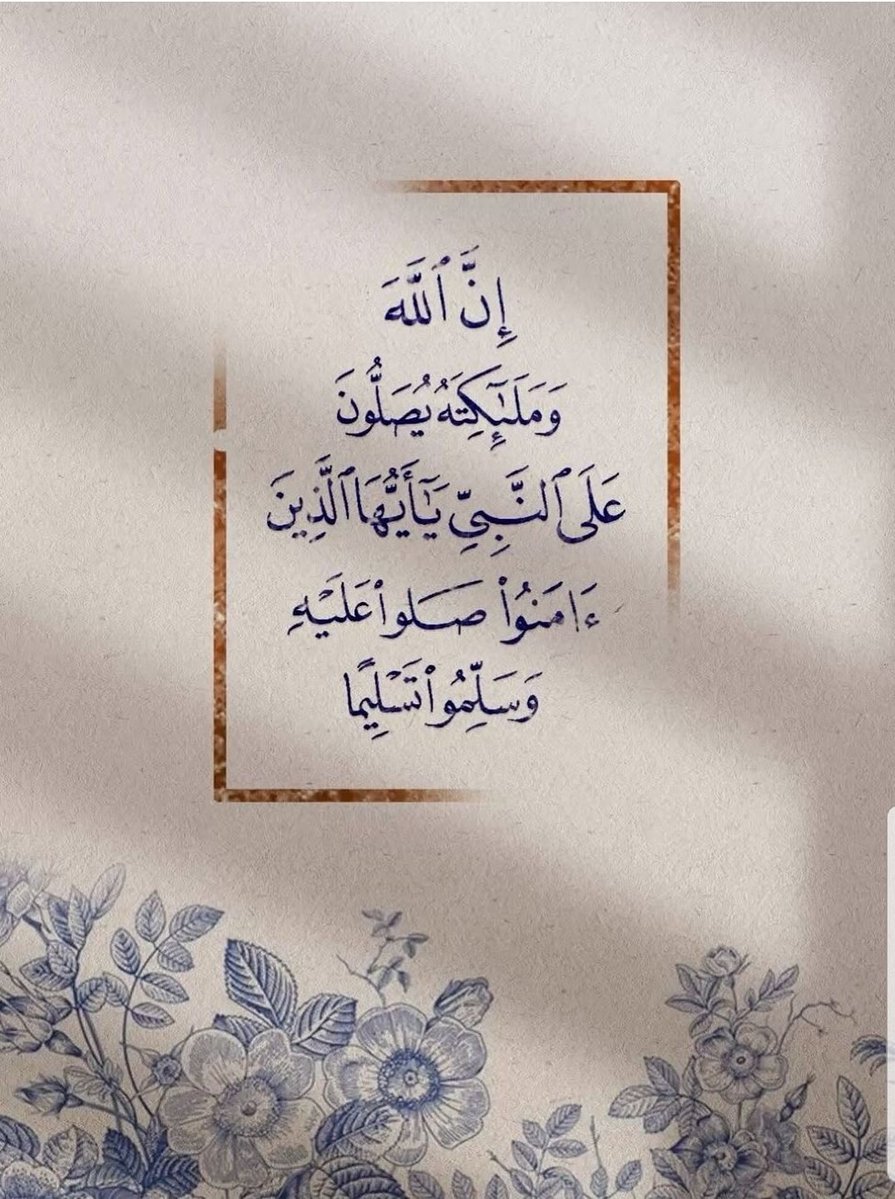 إِنَّ ٱللَّهَ
وَمَلَـٰٓئِكَتَهُ يُصَلُّونَ
عَلَى ٱلنَّبِىِّ يَـٰٓأَيُّهَا ٱلَّذِينَ
ءَامَنُوا۟ صَلوا۟ عَلَيْهِ
وَسَلِّمُوا۟ تَسْلِيمًا